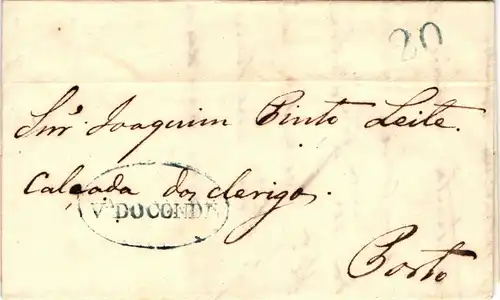 20
Snr. Joaquim Pinto Leite.
Calçada dos clerigos.
Vª DO CONDE
Porto